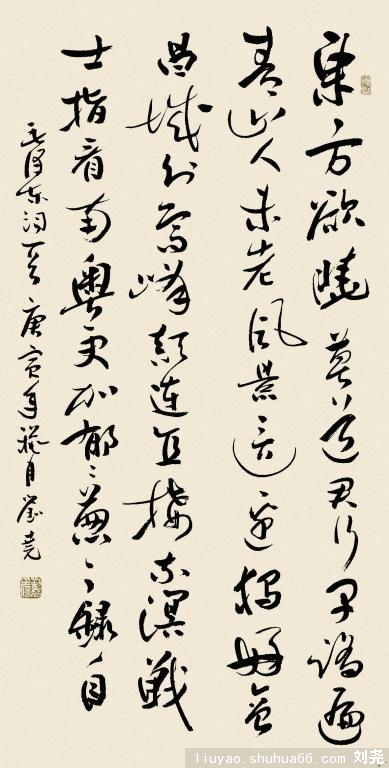 東方欲曉莫道君行早踏遍
青山人未老風景這邊獨好會
昌城外高峰顛連直接東溟戰
士指看南粵更加郁〻蔥〻錄自
毛澤东詞一首庚寅年月劉堯
liuyao.shuhua66.com 刘尧